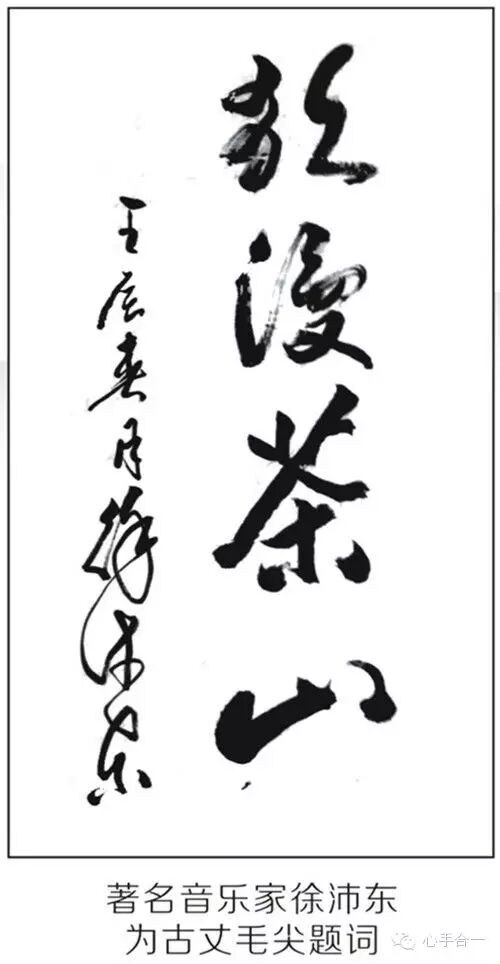 歌漫茶山
壬辰春月徐沛东
著名音乐家徐沛东
为古丈毛尖题词
心手合一